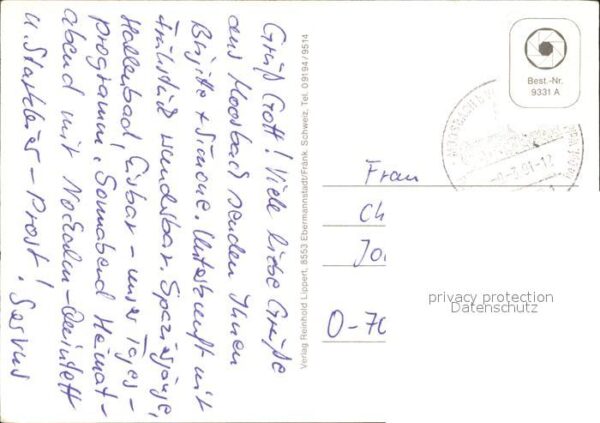 Grüß Gott! Viele liebe Grüße
aus Moosbach senden Ihnen
Brigitte + Simone. Unterkunft mit
Frühstück wunderbar. Spaziergänge,
Hallenbad, Eisbar – unser Tages-
programm. Sonnabend Heimat-
abend mit Nordalm-Quintett
u. Starkbier – Prost! Servus
Verlag Reinhold Lippert, 8553 Ebermannstadt/Fränk. Schweiz, Tel. 09194/9514
Best.-Nr.
9331 A
Frau
Ch
Jo
O-70
privacy protection
Datenschutz